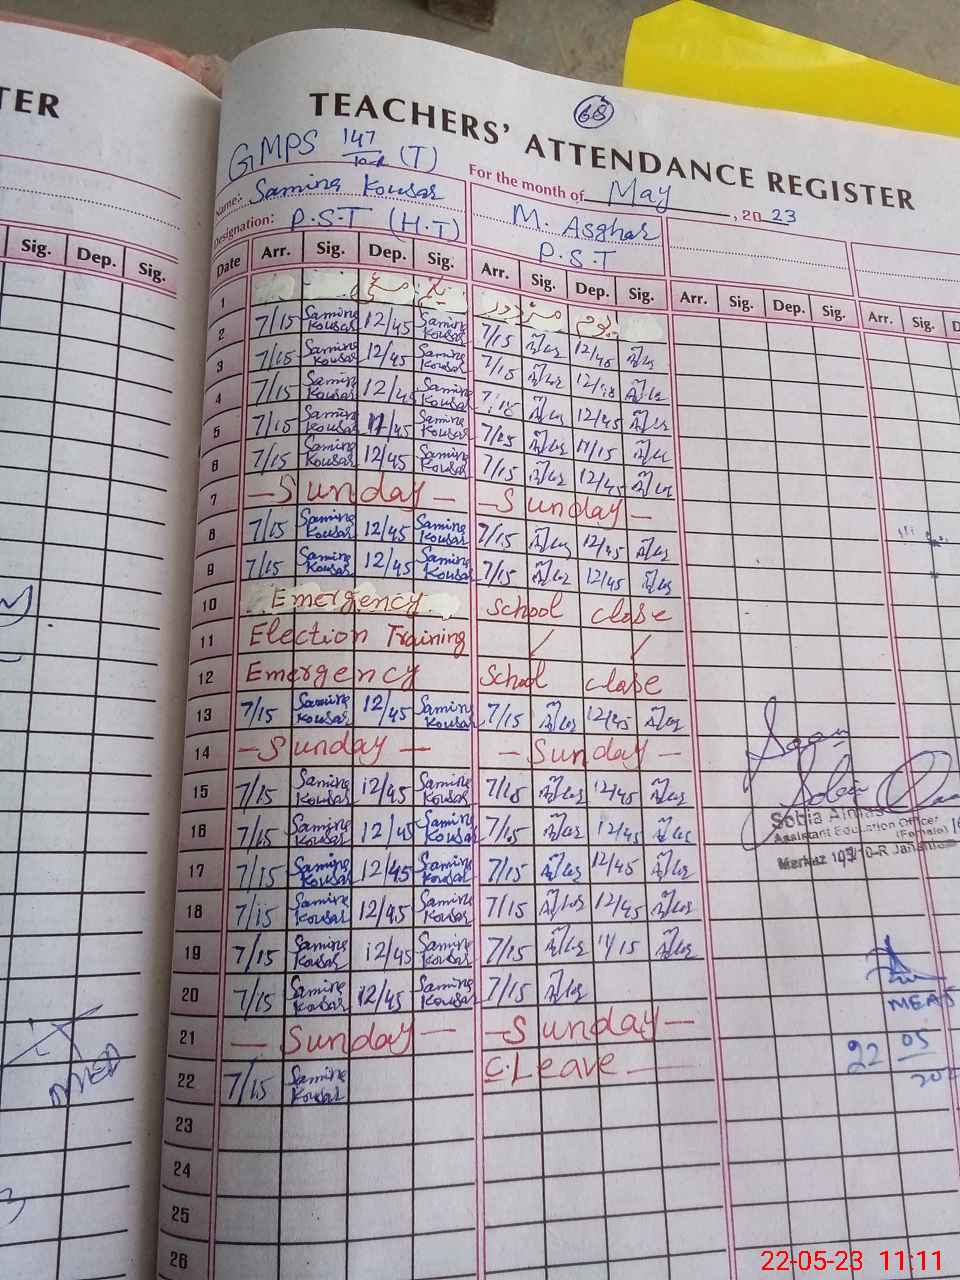 TER
68
TEACHERS' ATTENDANCE REGISTER
GMPS 147 (T)
For the month of May, 2023
Name: Samina Kousar
M. Asghar
Designation: P.S.T (H.T)
P.S.T
Sig. Dep. Sig.
Date Arr. Sig. Dep. Sig. Arr. Sig. Dep. Sig. Arr. Sig. Dep. Sig. Arr. Sig. D
1
2 7/15 Samina Kousar 12/45 Samina Kousar 7/15 12/45
3 7/15 Samina Kousar 12/45 Samina Kousar 7/15
4 7/15 Samina Kousar 12/45 Samina Kousar 12/45
5 7/15 Samina Kousar 11/45 Samina Kousar 7/15 11/15
6 7/15 Samina Kousar 12/45 Samina Kousar 7/15 12/45
7 – Sunday – – Sunday –
8 7/15 Samina Kousar 12/45 Samina Kousar 7/15 12/45
9 7/15 Samina Kousar 12/45 Samina Kousar 7/15 12/45
10 Emergency School close
11 Election Training
12 Emergency School close
13 7/15 Samina Kousar 12/45 Samina Kousar 7/15 12/45
14 – Sunday – – Sunday –
15 7/15 Samina Kousar 12/45 Samina Kousar 7/15 12/45
16 7/15 Samina Kousar 12/45 Samina Kousar 7/15 12/45
17 7/15 Samina Kousar 12/45 Samina Kousar 7/15 12/45
18 7/15 Samina Kousar 12/45 Samina Kousar 7/15 12/45
19 7/15 Samina Kousar 12/45 Samina Kousar 7/15 11/15
20 7/15 Samina Kousar 12/45 Samina Kousar 7/15
21 – Sunday – – Sunday –
22 7/15 Samina Kousar C. Leave
23
24
25
26
Sobia
Assistant Education Officer
(Female)
Markaz 103/10-R
MEA
22 05
22-05-23 11:11